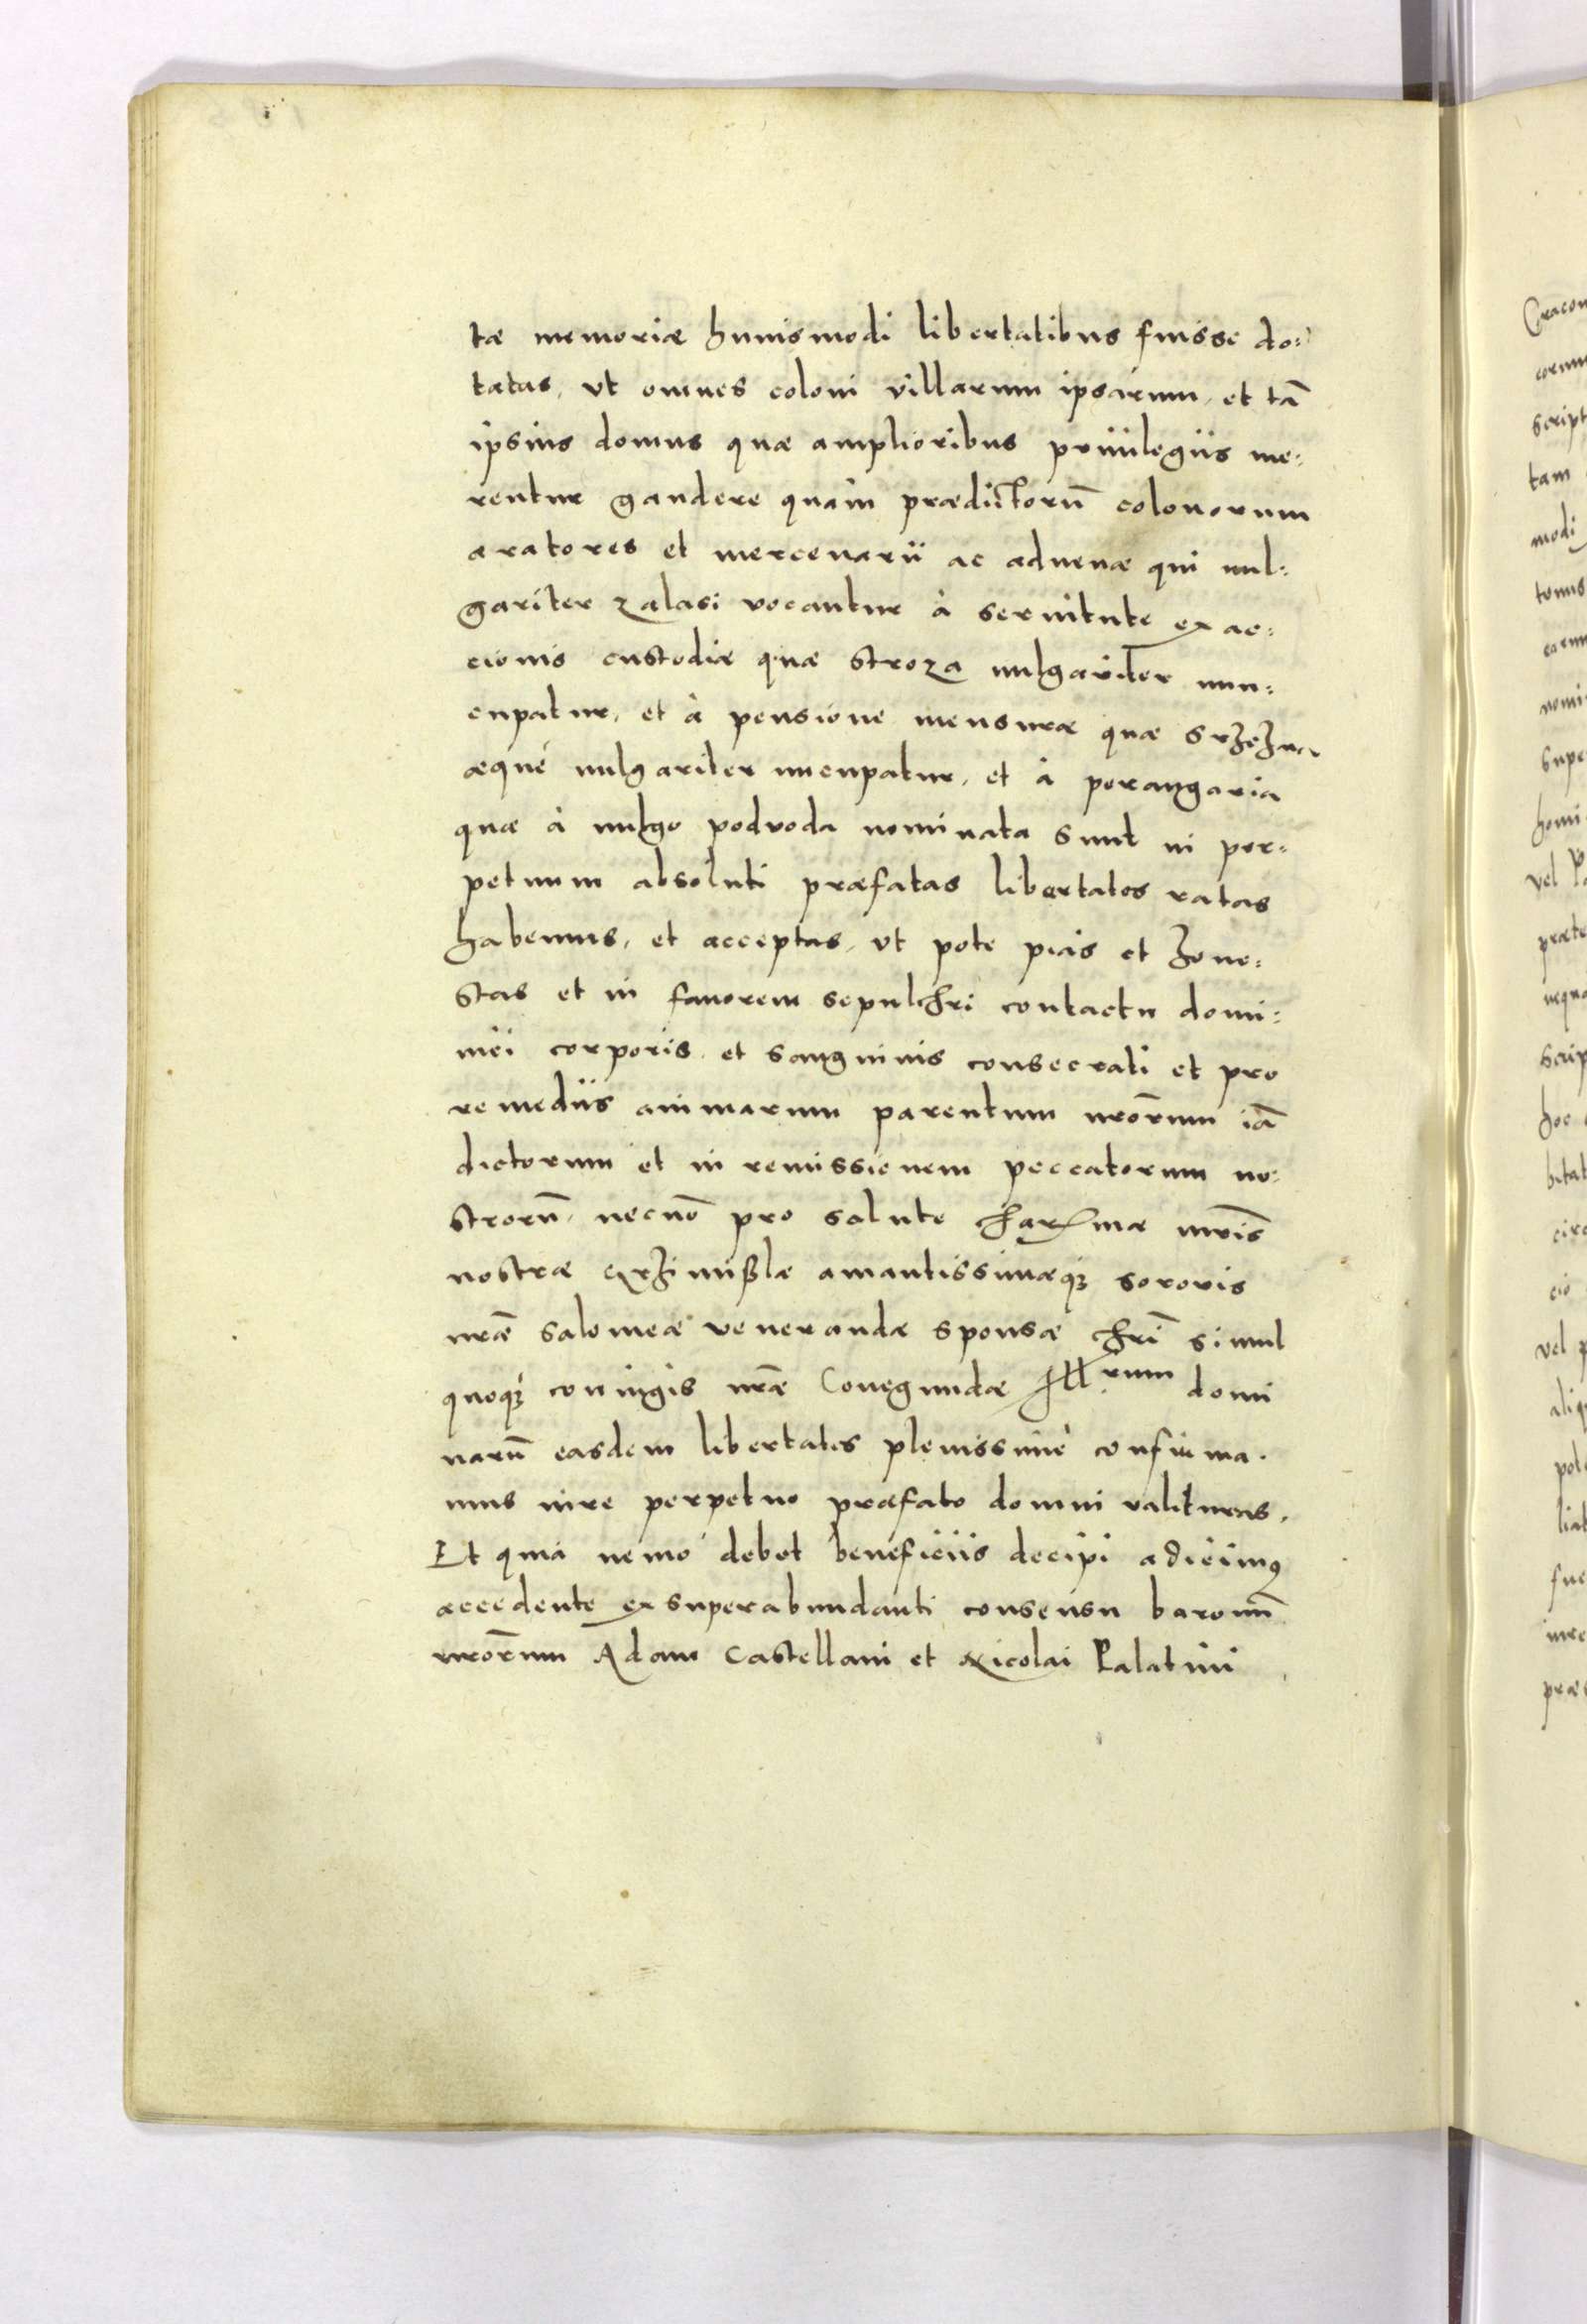 tæ memoriæ huiusmodi libertatibus fuisse do=
tatas, vt omnes coloni villarum ipsarum, et tā
ipsius domus quæ amplioribus priuilegiis me=
rentur gaudere quàm prædictorū colonorum
aratores et mercenarii ac aduenæ qui uul=
gariter zalasi vocantur à seruitute exac=
cionis custodiæ quæ stroza uulgariter nun=
cupatur, et à pensione mensuræ quæ
æque uulgariter nucupatur, et à perangaria
quæ à uulgo podvoda nominata sunt in per=
petuum absoluti præfatas libertates ratas
habemus, et acceptas, vt pote pias et hone=
stas et in fauorem sepulchri contactu domi=
nici corporis et sanguinis consecrati et pro
remediis animarum parentum nrōrum iā
dictorum et in remissionem peccatorum no=
strorū, necnō pro salute mrīs
nostræ amantissimæq; sororis
nrǣ salomeæ venerandæ sponsæ chrī simul
quoq; coniugis nrǣ Conegundæ Illrum domi
narū easdem libertates plenissimè confirma=
mus iure perpetuo præfato domui valituras.
Et quia nemo debet beneficiis decipi adicimus
accedente ex superabundanti consensu baronū
nrōrum Adam Castellani et Nicolai Palatini
Cracou
script
tam
modi